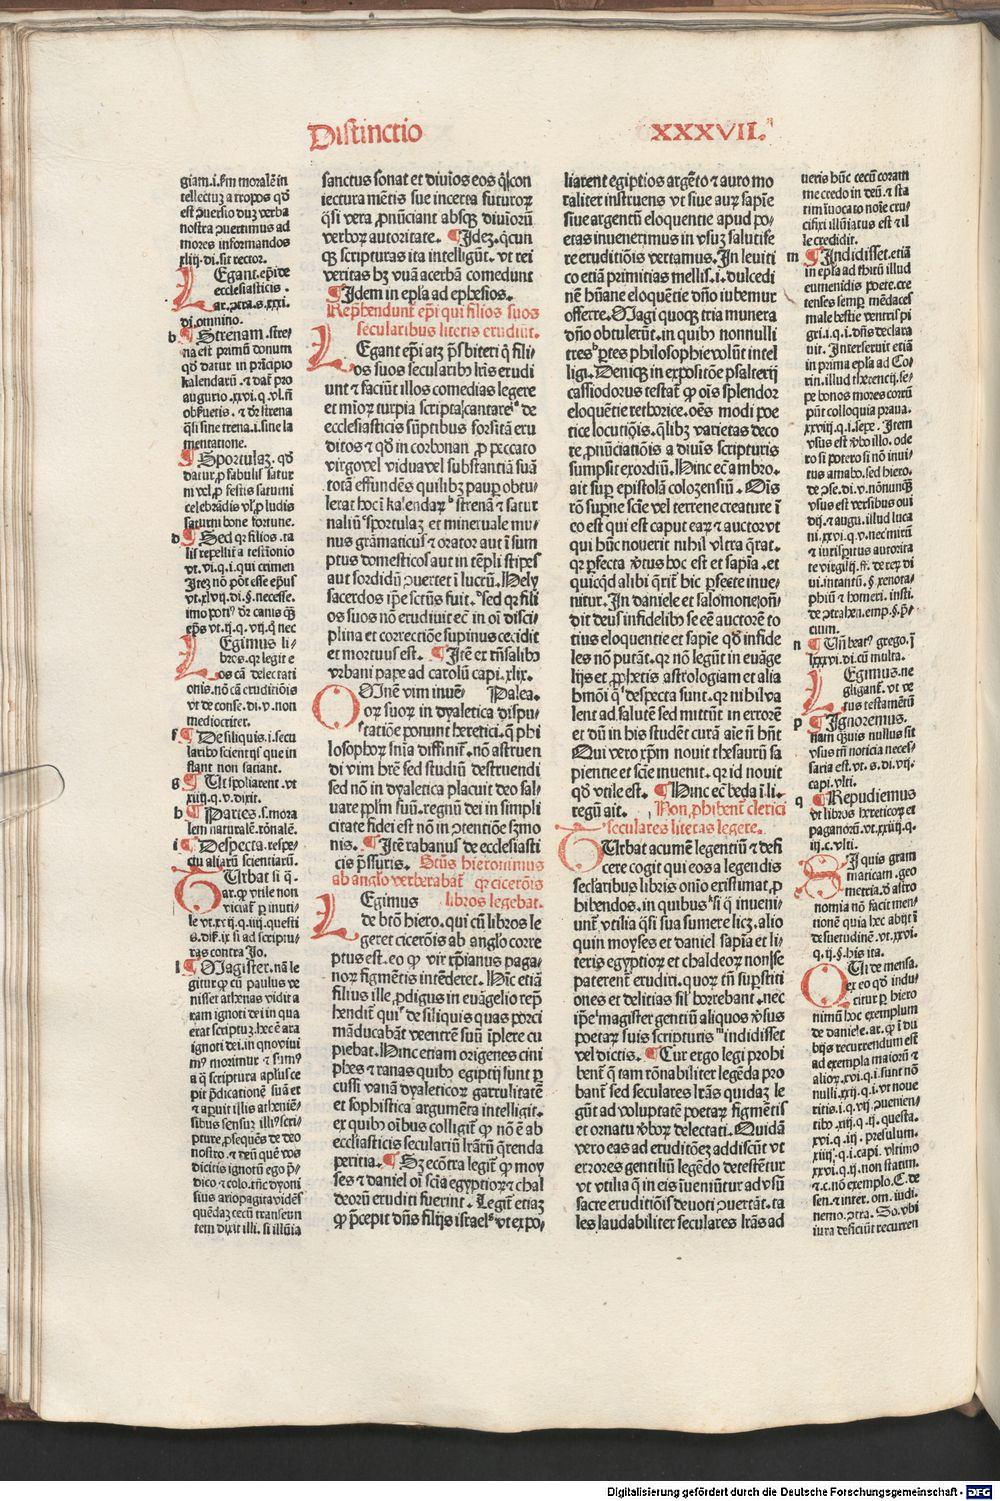 Distinctio
XXXVII.
giam.i.ſm moralē in
tellectuȝ a tropos qď
eſt ꝯuerſio duȝ verba
noſtra ꝯuertimus ad
mores informandos
xliij.di.ſit rector.
LEgant.ep̄i de
eccleſiaſticis.
ar.ꝯtra.s.xxi.
di.omnino.
b ¶ Strenam.ſtre
na eſt primū donum
qď datur in prīcipio
kalendarū. ⁊ dat̄ pro
augurio.xxvi.q.vl.ñ
obſeruetis. ⁊ dr̄ ſtrena
q̄ſi ſine trena.i.ſine la
mentatione.
¶ Sportulaȝ. qď
datur ꝓ fabulis ſatur
ni vel ꝓ feſtis ſaturni
celebrādis vl̓ ꝓ ludis
ſaturni bone fortune.
d ¶ Sed qꝛ filios.ta
lis repellit̄ a teſtīonio
vt.vi.q.i.qui crimen
Iteȝ nō pōt eſſe ep̄us
vt.xlvij.di.§.neceſſe.
imo poti⁹ dr̄ canis q̄ȝ
ep̄s vt.ij.q.vij.q̄ nec
LEgimus li-
bros.qꝛ legit e
os cā delectati
onis.nō cā eruditiōis
vt de conſe.di.v.non
mediocriter.
f ¶ De ſiliquis.i.ſecu
laribꝰ ſcientijs que in
flant non ſaciant.
g ¶ Ut ſpoliarent.vt
xiiij.q.v.dixit.
h ¶ Partes.ſ.mora
lem naturalē.rōnalē.
i ¶ Deſpecta.reſpe-
ctu aliarū ſcientiarū.
TUrbat ſi q̄-
ar.ꝙ vtile non
viciat̄ ꝑ inuti-
le vt.xxij.q.iiij.queſti
s.diſt̄.ix ſi ad ſcriptu-
ras contra Jo.
l ¶ Magiſter.nā le
gitur ꝙ cū paulus ve
niſſet athenas vidit a
ram ignoti dei in qua
erat ſcriptuȝ.hec ē ara
ignoti dei.in quo viui
m⁹ morimur ⁊ ſum⁹
a q̄ ſcriptura apl̓us ce
pit p̄dicationē ſuā et
⁊ aꝑuit illis atheniē-
ſibus ſenſuȝ illi⁹ ſcri-
pture.ꝓſequēs de deo
noſtro.⁊ deū quē vos
dicitis ignotū ego p̄-
dico ⁊ colo.tūc dyoni
ſius ariopagita vidēſ
quēdaȝ cecū tranſeun
tem dixit illi.ſi illūia
ſanctus ſonat et diuīos eos q̓ con
iectura mētis ſue incerta futuroꝝ
q̄ſi vera ꝓnūciant abſqȝ diuīorū
verboꝝ autoritate. ¶ Ideȝ.q̄cun
qȝ ſcripturas ita intelligūt.vt rei
veritas hȝ vuā acerbā comedunt
¶ Idem in epl̓a ad epheſios.
Rep̄hendunt̄ ep̄i qui filios ſuos
ſecularibus literis erudiūt.
LEgant ep̄i atȝ p̄ſbiteri q̄ fili-
os ſuos ſecularibꝰ lr̄is erudi
unt ⁊ faciūt illos comedias legere
et mīoꝝ turpia ſcripta cantare de
eccleſiaſticis ſūptibus forſitā eru
ditos ⁊ qď in corbonan ꝓ peccato
virgo vel vidua vel ſubſtantiā ſuā
totā effundēs quilibȝ pauꝑ obtu-
lerat hoc ī kalendaꝝ ᵇſtrenā ⁊ ſatur
naliū ᶜſportulaȝ et mineruale mu-
nus grāmaticus ⁊ orator aut ī ſum
ptus domeſticos aut in tēpli ſtipes
aut ſordidū ꝯuertet ī lucrū.Hely
ſacerdos ip̄e ſct̄us fuit.ᵈſed qꝛ fili
os ſuos nō erudiuit ec̄ in oī diſci-
plina et correctiōe ſupinus cecidit
et mortuus eſt. ¶ Itē ex trn̄ſalibꝰ
vrbani pape ad carolū capi.xlix.
OMnē vim inuen̄ Palea.
oꝝ ſuoꝝ in dyaletica diſpu-
tatiōe ponunt heretici.q̄ phi
loſophoꝝ ſnīa diffinit̄.nō aſtruen
di vim hr̄e ſed ſtudiū deſtruendi
ſed nō in dyaletica placuit deo ſal-
uare ꝓpl̓m ſuū.regnū dei in ſimpli
citate fidei eſt nō in ꝯtentiōe ſȝmo
nis. ¶ Itē rabanuſ de eccleſiaſti
cis p̄ſſuris. Sct̄us hieronimus
ab anglo verberabat̄ qꝛ ciceroīs
libros legebat.
LEgimus
de btō hiero.qui cū libros le
geret ciceroīs ab anglo corre
ptus eſt.eo ꝙ vir xp̄ianus paga-
noꝝ figmētis intēderet.Hīc etiā
filius ille ꝓdigus in euāgelio rep̄
hendit̄ qui ᶠde ſiliquis quas porci
māducabāt veentrē ſuū īplere cu
piebat.Hinc etiam origenes cini
phes ⁊ ranas quibꝰ egiptij ſunt ꝑ
cuſſi vanā dyaleticoꝝ garrulitatē
et ſophiſtica argumēta intelligit.
ex quibꝰ oībus colligit̄ ꝙ nō ē ab
eccleſiaſticis ſeculariū lr̄arū q̄renda
peritia. ¶ Sȝ ecōtra legit̄ ꝙ moy
ſes ⁊ daniel oī ſcīa egyptioꝝ ⁊ chal
deorū eruditi fuerint. Legit̄ etiaȝ
ꝙ p̄cepit dn̄s filijs iſrael ᵍvt expo-
liarent egiptios argēto ⁊ auro mo
raliter inſtruens vt ſiue auꝝ ſapīe
ſiue argentū eloquentie apud po-
etas inuenerimus in vſuȝ ſalutife
re eruditiōis vertamus.In leuiti
co etiā primitias mellis.i.dulcedi
nē hūane eloquētie dn̄o iubemur
offerre.Magi quoqȝ tria munera
dn̄o obtulerūt.in quibꝰ nonnulli
tres ʰꝑtes philoſophie volūt intel
ligi.Deniqȝ in expoſitōe pſalterij
caſſiodorus teſtat̄ ꝙ oīs ſplendor
eloquētie rethorice.oēs modi poe
tice locutiōis.q̄libȝ varietas deco
re ꝓnūciatiōis a diuīs ſcripturis
ſumpſit exordiū.Hinc ec̄ ambro.
ait ſuꝑ epiſtolā colozenſiū.Oīs
rō ſuꝑne ſcīe vel terrene creature ī
eo eſt qui eſt caput eaꝝ ⁊ auctor vt
qui hūc nouerit nihil vltra q̄rat.
qꝛ ꝑfecta v̓tus hoc eſt et ſapīa.et
quicqď alibi q̄rit̄ hic ꝑfecte inue-
nitur.In daniele et ſalomone oñ-
dit deus infidelibꝰ ſe eē auctorē to
tius eloquentie et ſapīe qď infide
les nō putāt.qꝛ nō legūt in euāge
lijs et ꝓphetis aſtrologiam et alia
hmōi q̄ ⁱdeſpecta ſunt.qꝛ nihil va
lent ad ſalutē ſed mittūt in errorē
et dū in his ſtudēt curā aīe ñ hn̄t
Qui vero xp̄m nouit theſaurū ſa
pientie et ſcīe inuenit.qꝛ id nouit
qď vtile eſt. ¶ Hinc ec̄ beda ī li.
regū ait. Non ꝓhibent̄ clerici
ſeculares literas legere.
TUrbat acumē legentiū ⁊ defi
cere cogit qui eos a legendis
ſeclaribus libris oīno exiſtimat ꝓ
hibendos.in quibus ᵏſi q̄ inueni-
unt̄ vtilia q̄ſi ſua ſumere licȝ.alio
quin moyſes et daniel ſapīa et li-
teris egyptioꝝ et chaldeoꝝ non ſe
paterent̄ erudiri.quoꝝ tn̄ ſuꝑſtiti
ones et delitias ſil̓ horrebant.nec
ip̄e ˡmagiſter gentiū aliquos v̓ſus
poetaꝝ ſuis ſcripturis ᵐindidiſſet
vel dictis. ¶ Cur ergo legi prohi
bent̄ q̄ tam rōnabiliter legēda pro
bant̄ ſed ſeculares lr̄as quidaȝ le
gūt ad voluptatē poetaꝝ figmētis
et ornatu v̓boꝝ delectati.Quidā
vero eas ad eruditōeȝ addiſcūt vt
errores gentiliū legēdo deteſtētur
vt vtilia q̄ in eis īueniūtur ad vſū
ſacre eruditiōis deuoti ꝯuertāt.ta
les laudabiliter ſeculares lr̄as ad
ueris hūc cecū coram
me credo in deū.⁊ ſta
tim īuocato noīe cru-
cifixi illūiatus eſt ⁊ il
le credidit.
m ¶ Indidiſſet.etiā
in epl̓a ad thitū illud
eumenidis poete.cre
tenſes ſemꝑ mēdaces
male beſtie ventris pi
gri.i.q.i.dn̄s declara
uit.Interſeruit etiā
in prima epl̓a ad Co-
rin.illud therencij.ſe-
pe bonos mores corrū
pūt colloquia praua.
xxviij.q.i.ſepe.Item
vſus eſt v̓bo illo.ode
ro ſi potero ſi nō inui-
tus amabo.ſed hiero.
de ꝯſe.di.v.nōnunqȝ
vſus eſt verſibus oui
dij.⁊ augu.illud luca
ni.xxvi.q.v.nec mirū
⁊ iuriſꝑitus autorita
te virgilij.ff.de reꝝ di
ui.intantū.§ xenota-
phiū ⁊ homeri.inſti.
de ꝯtrahen.emp.§.p̄-
cium.
n ¶ Uñ beat⁹ grego.ī
lxxxvi.di.cū multa.
LEgimus.ne
gligant̄.vt ve
tus teſtamētū
p ¶ Ignoremus.
nam q̄uis nullus ſit
vſus tn̄ noticia neceſ-
ſaria eſt.vt.s.di.vij.
capi.vlti.
q ¶ Repudiemus
vt libros hereticoꝝ et
paganorū.vt.xxiiij.q.
iij.c.vlti.
SI quis gram
maticam.geo
metria.ꝰ aſtro
nomia nō facit men-
nonē quia hec abijt ī
deſuetudinē.vt.xxvi.
q.ij.§.his ita.
OLi de menſa.
ex eo qď indu-
citur ꝑ hiero
nimū hoc exemplum
de daniele.ar.ꝙ ī du
bijs recurrendum eſt
ad exempla maiorū ⁊
alioꝝ.xvi.q.i.ſunt nō
nulli.xxij.q.i.vt noue
ritis.i.q.vij.ꝯuenien-
tibꝰ.xiij.q.ij.queſta.
xvi.q.iij.preſulum.
xiiij.q.i.capi.vltimo
xxvi.q.ij.non ſtatim.
⁊.c.nō exemplo.C.de
ſen.⁊ inter.om.iudi.
nemo.ꝯtra.So.vbi
iura deficiūt recurren
Digitalisierung gefördert durch die Deutsche Forschungsgemeinschaft - DFG